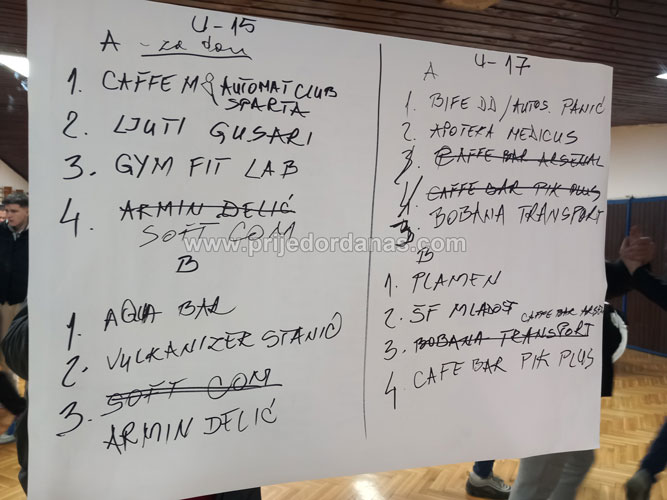 U-15
A - za dom
1. CAFFE M&J AUTOMATCLUB
SPARTA
2. LJUTI GUSARI
3. GYM FIT LAB
4. ARMIN DELIĆ
SOFT COM
B
1. AQUA BAR
2. VULKANIZER STANIĆ
3. SOFT COM
ARMIN DELIĆ
U-17
A
1. BIFE DD/AUTOS. PANIĆ
2. APOTEKA MEDICUS
3. CAFFE BAR ARSENAL
4. CAFFE BAR PIK PLUS
3. BOBANA TRANSPORT
B
1. PLAMEN
2. ŠF MLADOST
CAFFE BAR ARSE
3. BOBANA TRANSPORT
4 CAFE BAR PIK PLUS
www.prijedordanas.com